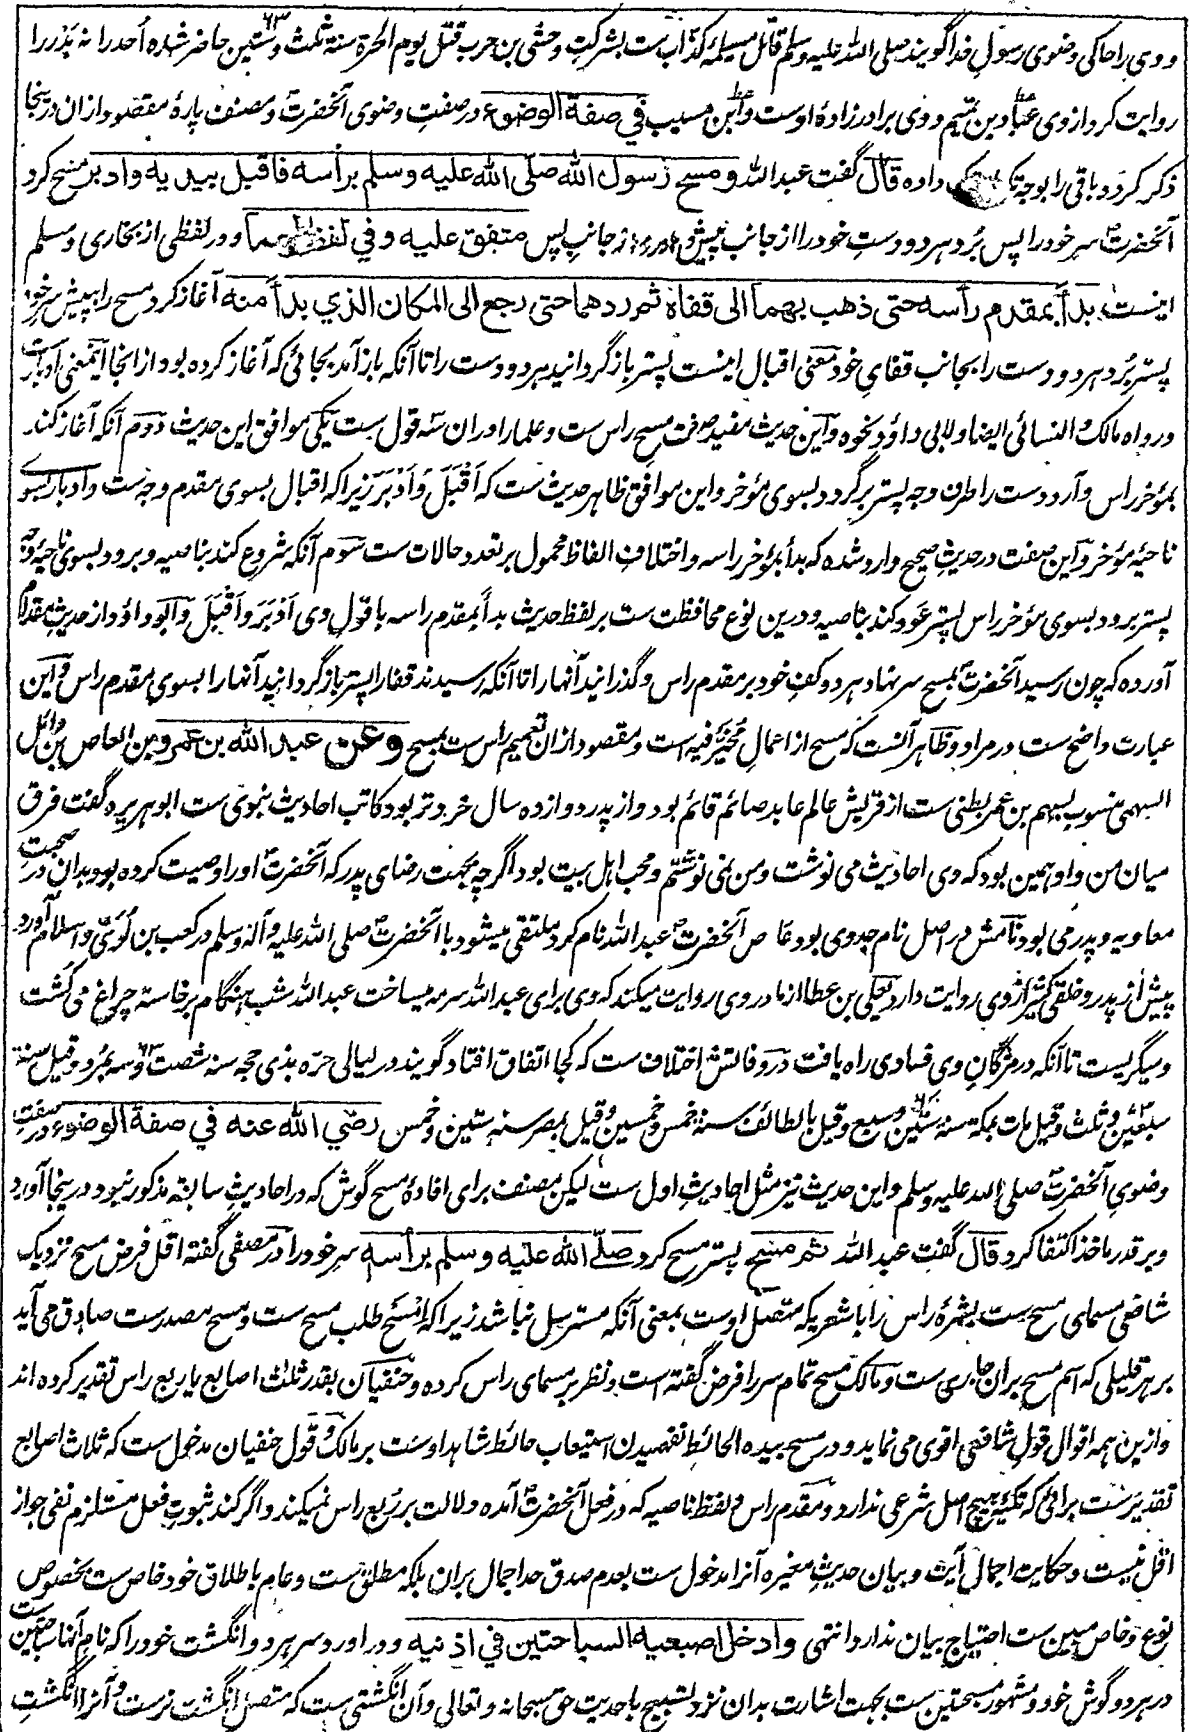 و وی را حاکی وضوی رسول خدا گویند صلی الله علیه وسلم قاتل مسیلمه کذاب ست بشرکت وحشی بن حرب قتل یوم الحرة سنة ثلث وستین ۶۳ حاضر شده أحد را نه بدر را
روایت کرد از وی عباد بن تمیم و وی برادر زادهٔ اوست وابن مسیب في صفة الوضوء در صفت وضوی آنحضرت و مصنف پارهٔ مقصود ازان درینجا
ذکر کرد و باقی را بوجه داده قال گفت عبد الله ومسح رسول الله صلى الله عليه وسلم برأسه فاقبل بيديه وادبر مسح کرد
آنحضرتؐ سر خود را پس برد هر دو دست خود را از جانب پیش و از جانب پس متفق عليه وفي لفظ لهما و در لفظی از بخاری و مسلم
اینست بدأ بمقدم رأسه حتى ذهب بهما الى قفاه ثم ردهما حتى رجع الى المكان الذي بدأ منه آغاز کرد مسح را به پیش سر خود
پستر برد هر دو دست را بجانب قفای خود معنی اقبال اینست پستر باز گردانید هر دو دست را تا آنکه باز آمد بجائی که آغاز کرده بود از انجا اینمعنی ادبار ست
ورواه مالک والنسائی ایضا ولابی داؤد نحوه واین حدیث مفید صفت مسح راس ست و علما را دران سه قول ست یکی موافق این حدیث دوم آنکه آغاز کند
بمؤخر راس و آرد دست را طرف وجه پستر برگردد بسوی مؤخر و این موافق ظاهر حدیث ست که أقبل وأدبر زیرا که اقبال بسوی مقدم وجه ست و ادبار بسوی
ناحیهٔ مؤخر واین صفت در حدیث صحیح وارد شده که بدأ بمؤخر راسه و اختلاف الفاظ محمول بر تعدد حالات ست سوم آنکه شروع کند بناصیه و برود بسوی ناحیهٔ وجه
پستر برود بسوی مؤخر راس پستر عود کند بناصیه و درین نوع محافظت ست بر لفظ حدیث بدأ بمقدم راسه با قول وی أدبر وأقبل وابو داؤد از حدیث مقدام
آورده که چون رسید آنحضرتؐ بمسح سر نهاد هر دو کف خود بر مقدم راس و گذرانید آنها را تا آنکه رسیدند قفا را پستر باز گردانید آنها را بسوی مقدم راس واین
عبارت واضح ست در مراد وظاهر آنست که مسح از اعمال مخیر فیه است ومقصود ازان تعمیم راس ست بمسح وعن عبد الله بن عمرو بن العاص بن وائل
السهمی منسوب بسهم بن عمر بطنی ست از قریش عالم عابد صائم قائم بود و از پدر دوازده سال خردتر بود کاتب احادیث نبوی ست ابو هریره گفت فرق
میان من و او همین بود که وی احادیث می نوشت ومن نمی نوشتم و محب اهل بیت بود اگرچه بجهت رضای پدر که آنحضرتؐ او را وصیت کرده بود بدان در صحبت
معاویه و پدر می بود نامش در اصل نام جدوی بود عاص آنحضرتؐ عبد الله نام کرد ملتقی میشود با آنحضرتؐ صلی الله علیه وآله وسلم در کعب بن لوی واسلام آورد
پیش از پدر وخلقی کثیر از وی روایت دارد یعلی بن عطا از مادر وی روایت میکند که وی برای عبد الله سرمه میساخت عبد الله شب هنگام برخاسته چراغ می کشت
ومیگریست تا آنکه در مژگان وی فسادی راه یافت در وفاتش اختلاف ست که کجا اتفاق افتاد گویند در لیالی حره بذی حجه سنه شصت وسه ۶۳ بمرد وقیل سنة
سبعین وثلث وقیل مات بمکة سنة ستین وسبع وقیل بالطائف سنة خمس وخمسین وقیل بمصر سنة ستین وخمس رضي الله عنه في صفة الوضوء در صفت
وضوی آنحضرتؐ صلی الله علیه وسلم واین حدیث نیز مثل احادیث اول ست لیکن مصنف برای افادهٔ مسح گوش که در احادیث سابقه مذکور نبود درینجا آورد
وبر قدر ماخذ اکتفا کرد قال گفت عبد الله ثم مسح پستر مسح کرد صلى الله عليه وسلم برأسه سر خود را در مصفی گفته اقل فرض مسح نزدیک
شافعی مسمای مسح ست بشرهٔ راس را یا شعریکه متصل اوست بمعنی آنکه مسترسل نباشد زیرا که امسح طلب مسح ست ومسح مصدرست صادق می آید
بر هر قلیلی که اسم مسح بران جاری ست ومالک مسح تمام سر را فرض گفته است ونظر بر مسمای راس کرده وحنفیان بقدر ثلث اصابع یا ربع راس تقدیر کرده اند
وازین همه اقوال قول شافعی اقوی می نماید و در مسح بیده الحائط نفهمیدن استیعاب حائط شاهد اوست بر مالک وقول حنفیان مدخول ست که ثلاث اصابع
تقدیریست برائی که تکیه بهیچ اصل شرعی ندارد ومقدم راس ولفظ ناصیه که در فعل آنحضرتؐ آمده دلالت بر ربع راس نمیکند و اگر کند ثبوت فعل مستلزم نفی جواز
اقل نیست وحکایت اجمال آیت وبیان حدیث مغیره آنرا مدخول ست بعدم صدق حد اجمال بران بلکه مطلق ست وعام باطلاق خود خاص ست بخصوص
نوع وخاص مبین ست احتیاج بیان ندارد انتهی وادخل اصبعيه السباحتين في اذنيه و در آورد سر هر دو انگشت خود را که نام آنها سباحتین ست
در هر دو گوش خود و مشهور مسبحتین ست بجهت اشارت بدان نزد تسبیح باحدیت حق سبحانه وتعالی وآن انگشتی ست که متصل انگشت نرست وآنرا انگشت